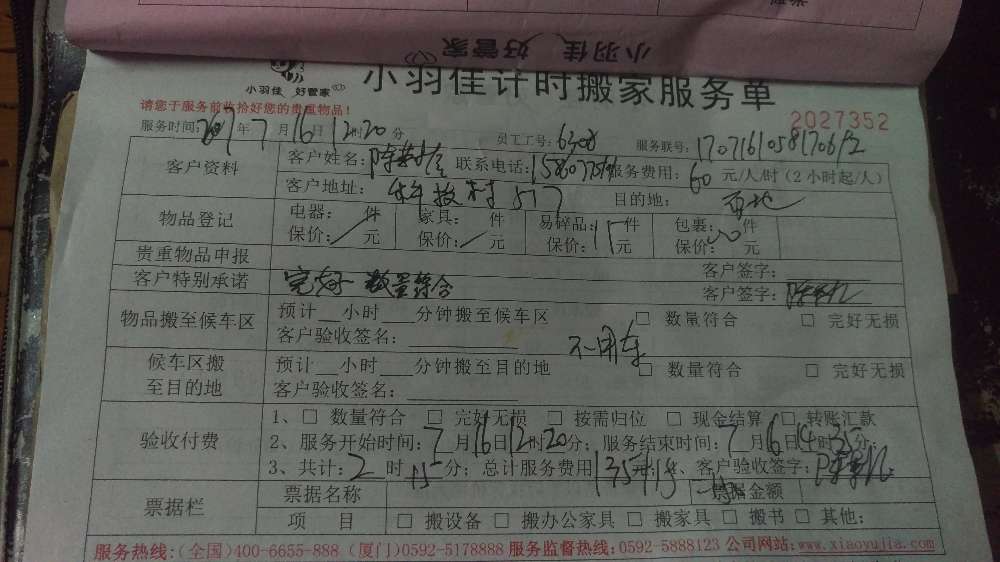 小羽佳 好管家
小羽佳 好管家
小羽佳计时搬家服务单
请您于服务前收拾好您的贵重物品!
2027352
服务时间: 2017年7月16日12时20分 员工工号: 6308 服务联号:
客户资料 客户姓名: 联系电话: 服务费用: 60元/人/时(2小时起/人)
客户地址: 科技村517 目的地: 西地
物品登记 电器: 件 家具: 件 易碎品: 件 包裹: 件
保价: 元 保价: 元 保价: 元 保价: 元
贵重物品申报 客户签字:
客户特别承诺 完好 数量符合 客户签字:
物品搬至候车区 预计__小时___分钟搬至候车区 □ 数量符合 □ 完好无损
客户验收签名: 不用车
候车区搬至目的地 预计__小时___分钟搬至目的地 □ 数量符合 □ 完好无损
客户验收签名:
验收付费 1、□ 数量符合 □ 完好无损 □ 按需归位 □ 现金结算 □ 转账汇款
2、服务开始时间:7月16日12时20分; 服务结束时间:7月16日14时35分;
3、共计:2时15分; 总计服务费用135元; 4、客户验收签字:
票据栏 票据名称 票据金额
项 目 □ 搬设备 □ 搬办公家具 □ 搬家具 □ 搬书 □ 其他:
服务热线:(全国)400-6655-888 (厦门)0592-5178888 服务监督热线:0592-5888123 公司网站:www.xiaoyujia.com